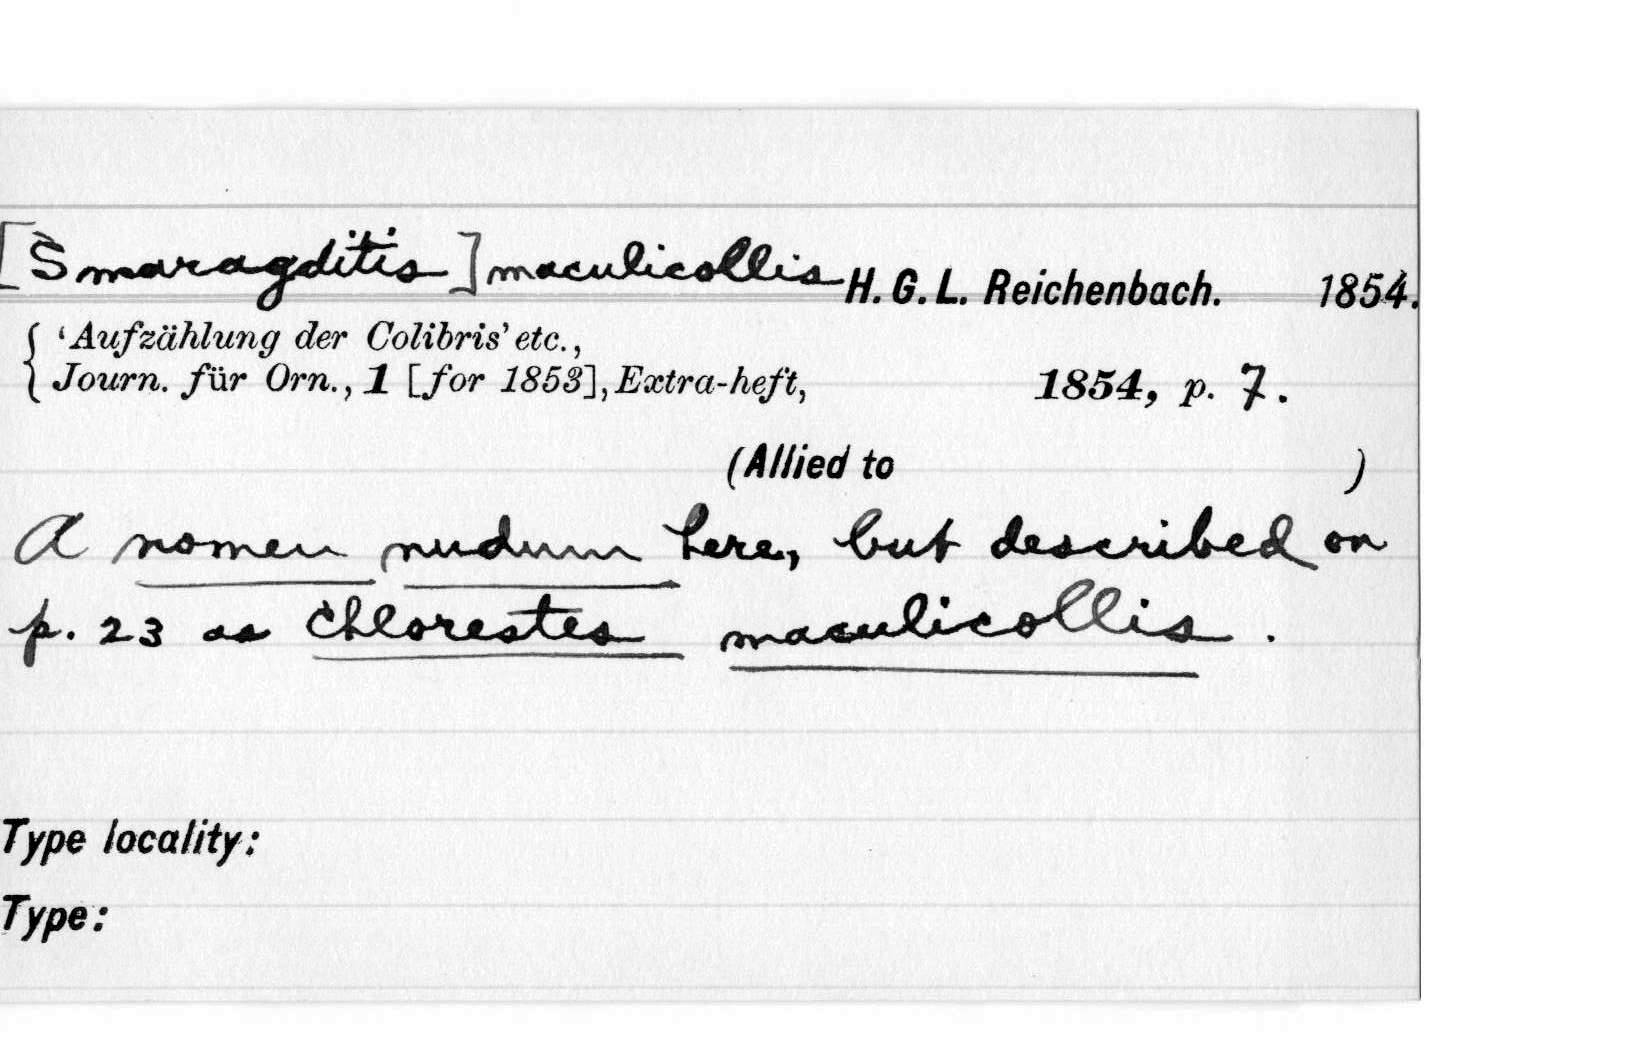 [Smaragditis] maculicollis H. G. L. Reichenbach. 1854.
'Aufzählung der Colibris' etc.,
Journ. für Orn., 1 [for 1853], Extra-heft, 1854, p. 7.
(Allied to )
A nomen nudum here, but described on
p. 23 as Chlorestes maculicollis.
Type locality:
Type: